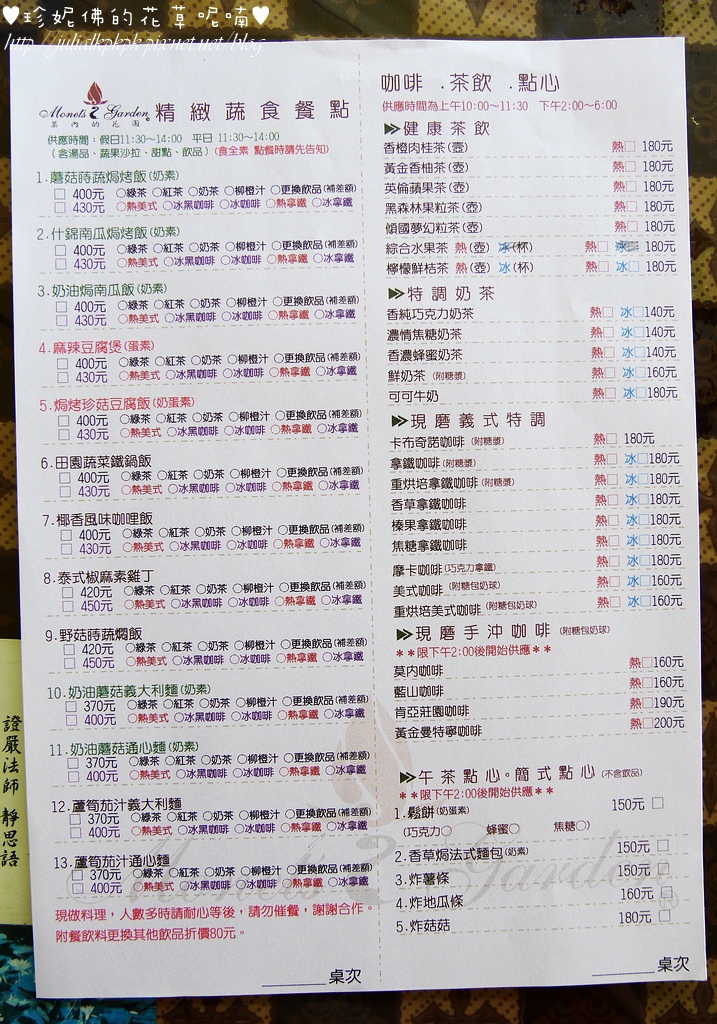 ♥珍妮佛的花草呢喃♥
http://julialkpkpk.pixnet.net/blog
Monets Garden
莫內的花園
精緻蔬食餐點
供應時間：假日11:30~14:00 平日 11:30~14:00
(含湯品、蔬果沙拉、甜點、飲品)(食全素 點餐時請先告知)
1.蘑菇蒔蔬焗烤飯(奶素)
□ 400元 ○綠茶 ○紅茶 ○奶茶 ○柳橙汁 ○更換飲品(補差額)
□ 430元 ○熱美式 ○冰黑咖啡 ○冰咖啡 ○熱拿鐵 ○冰拿鐵
2.什錦南瓜焗烤飯(奶素)
□ 400元 ○綠茶 ○紅茶 ○奶茶 ○柳橙汁 ○更換飲品(補差額)
□ 430元 ○熱美式 ○冰黑咖啡 ○冰咖啡 ○熱拿鐵 ○冰拿鐵
3.奶油焗南瓜飯(奶素)
□ 400元 ○綠茶 ○紅茶 ○奶茶 ○柳橙汁 ○更換飲品(補差額)
□ 430元 ○熱美式 ○冰黑咖啡 ○冰咖啡 ○熱拿鐵 ○冰拿鐵
4.麻辣豆腐煲(蛋素)
□ 400元 ○綠茶 ○紅茶 ○奶茶 ○柳橙汁 ○更換飲品(補差額)
□ 430元 ○熱美式 ○冰黑咖啡 ○冰咖啡 ○熱拿鐵 ○冰拿鐵
5.焗烤珍菇豆腐飯(奶蛋素)
□ 400元 ○綠茶 ○紅茶 ○奶茶 ○柳橙汁 ○更換飲品(補差額)
□ 430元 ○熱美式 ○冰黑咖啡 ○冰咖啡 ○熱拿鐵 ○冰拿鐵
6.田園蔬菜鐵鍋飯
□ 400元 ○綠茶 ○紅茶 ○奶茶 ○柳橙汁 ○更換飲品(補差額)
□ 430元 ○熱美式 ○冰黑咖啡 ○冰咖啡 ○熱拿鐵 ○冰拿鐵
7.椰香風味咖哩飯
□ 400元 ○綠茶 ○紅茶 ○奶茶 ○柳橙汁 ○更換飲品(補差額)
□ 430元 ○熱美式 ○冰黑咖啡 ○冰咖啡 ○熱拿鐵 ○冰拿鐵
8.泰式椒麻素雞丁
□ 420元 ○綠茶 ○紅茶 ○奶茶 ○柳橙汁 ○更換飲品(補差額)
□ 450元 ○熱美式 ○冰黑咖啡 ○冰咖啡 ○熱拿鐵 ○冰拿鐵
9.野菇蒔蔬燜飯
□ 420元 ○綠茶 ○紅茶 ○奶茶 ○柳橙汁 ○更換飲品(補差額)
□ 450元 ○熱美式 ○冰黑咖啡 ○冰咖啡 ○熱拿鐵 ○冰拿鐵
10.奶油蘑菇義大利麵(奶素)
□ 370元 ○綠茶 ○紅茶 ○奶茶 ○柳橙汁 ○更換飲品(補差額)
□ 400元 ○熱美式 ○冰黑咖啡 ○冰咖啡 ○熱拿鐵 ○冰拿鐵
11.奶油蘑菇通心麵(奶素)
□ 370元 ○綠茶 ○紅茶 ○奶茶 ○柳橙汁 ○更換飲品(補差額)
□ 400元 ○熱美式 ○冰黑咖啡 ○冰咖啡 ○熱拿鐵 ○冰拿鐵
12.蘆筍茄汁義大利麵
□ 370元 ○綠茶 ○紅茶 ○奶茶 ○柳橙汁 ○更換飲品(補差額)
□ 400元 ○熱美式 ○冰黑咖啡 ○冰咖啡 ○熱拿鐵 ○冰拿鐵
13.蘆筍茄汁通心麵
□ 370元 ○綠茶 ○紅茶 ○奶茶 ○柳橙汁 ○更換飲品(補差額)
□ 400元 ○熱美式 ○冰黑咖啡 ○冰咖啡 ○熱拿鐵 ○冰拿鐵
現做料理，人數多時請耐心等後，請勿催餐，謝謝合作。
附餐飲料更換其他飲品折價80元。
桌次
咖啡．茶飲．點心
供應時間為上午10:00~11:30 下午2:00~6:00
健康茶飲
香橙肉桂茶(壺) 熱□ 180元
黃金香柚茶(壺) 熱□ 180元
英倫蘋果茶(壺) 熱□ 180元
黑森林果粒茶(壺) 熱□ 180元
傾國夢幻粒茶(壺) 熱□ 180元
綜合水果茶 熱(壺) 冰(杯) 熱□ 冰□ 180元
檸檬鮮桔茶 熱(壺) 冰(杯) 熱□ 冰□ 180元
特調奶茶
香純巧克力奶茶 熱□ 冰□140元
濃情焦糖奶茶 熱□ 冰□140元
香濃蜂蜜奶茶 熱□ 冰□140元
鮮奶茶 (附糖漿) 熱□ 冰□160元
可可牛奶 熱□ 冰□180元
現磨義式特調
卡布奇諾咖啡 (附糖漿) 熱□ 180元
拿鐵咖啡 (附糖漿) 熱□ 冰□180元
重烘培拿鐵咖啡 (附糖漿) 熱□ 冰□180元
香草拿鐵咖啡 熱□ 冰□180元
榛果拿鐵咖啡 熱□ 冰□180元
焦糖拿鐵咖啡 熱□ 冰□180元
摩卡咖啡(巧克力拿鐵) 熱□ 冰□180元
美式咖啡 (附糖包奶球) 熱□ 冰□160元
重烘培美式咖啡 (附糖包奶球) 熱□ 冰□160元
現磨手沖咖啡 (附糖包奶球)
**限下午2:00後開始供應**
莫內咖啡 熱□160元
藍山咖啡 熱□160元
肯亞莊園咖啡 熱□190元
黃金曼特寧咖啡 熱□200元
午茶點心。簡式點心 (不含飲品)
**限下午2:00後開始供應**
1.鬆餅(奶蛋素) 150元 □
(巧克力○ 蜂蜜○ 焦糖○)
2.香草焗法式麵包(奶素) 150元 □
3.炸薯條 150元 □
4.炸地瓜條 160元 □
5.炸菇菇 180元 □
Monets Garden
桌次
證嚴法師 靜思語